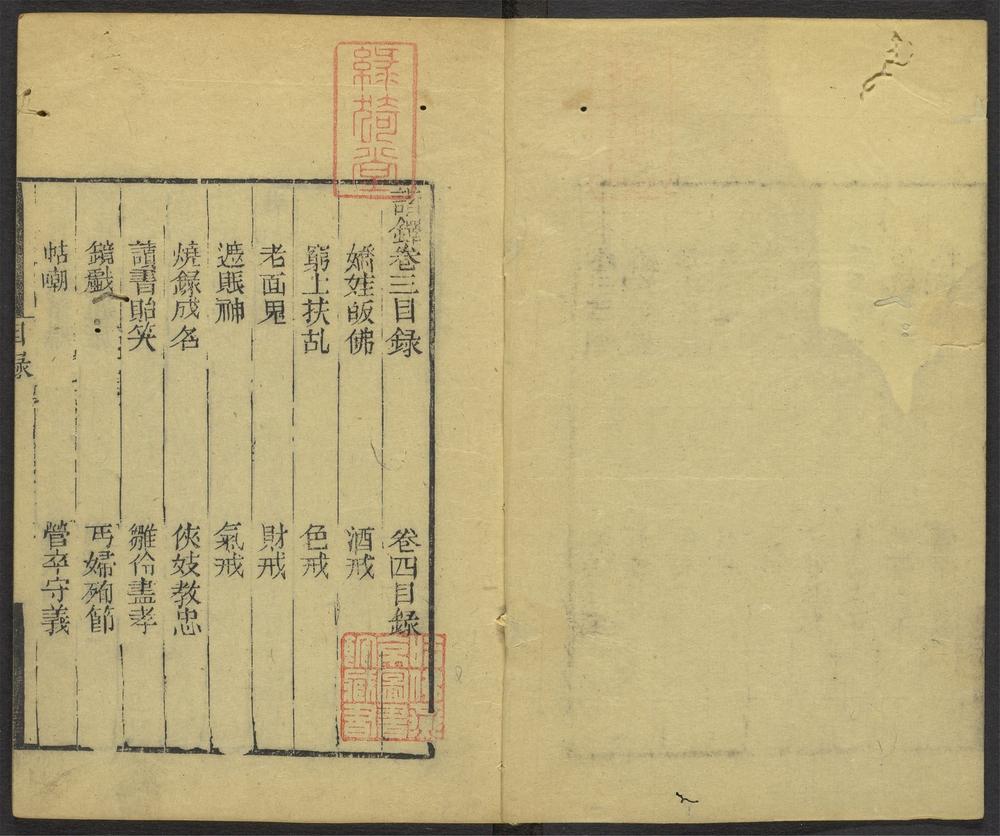 諧鐸卷三目錄
卷四目錄
嬌娃皈佛
酒戒
窮士扶乩
色戒
老面鬼
財戒
遮眼神
氣戒
燒錄成名
俠妓教忠
讀書貽笑
雛伶盡孝
鏡戲
丐婦殉節
帖嘲
營卒守義
目錄
綠猗堂